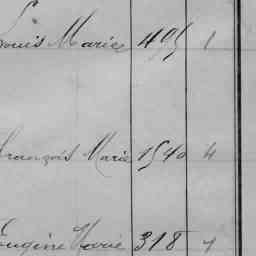 Louis Marie 495 1
François Marie 1540 4
Eugène Marie 318 4